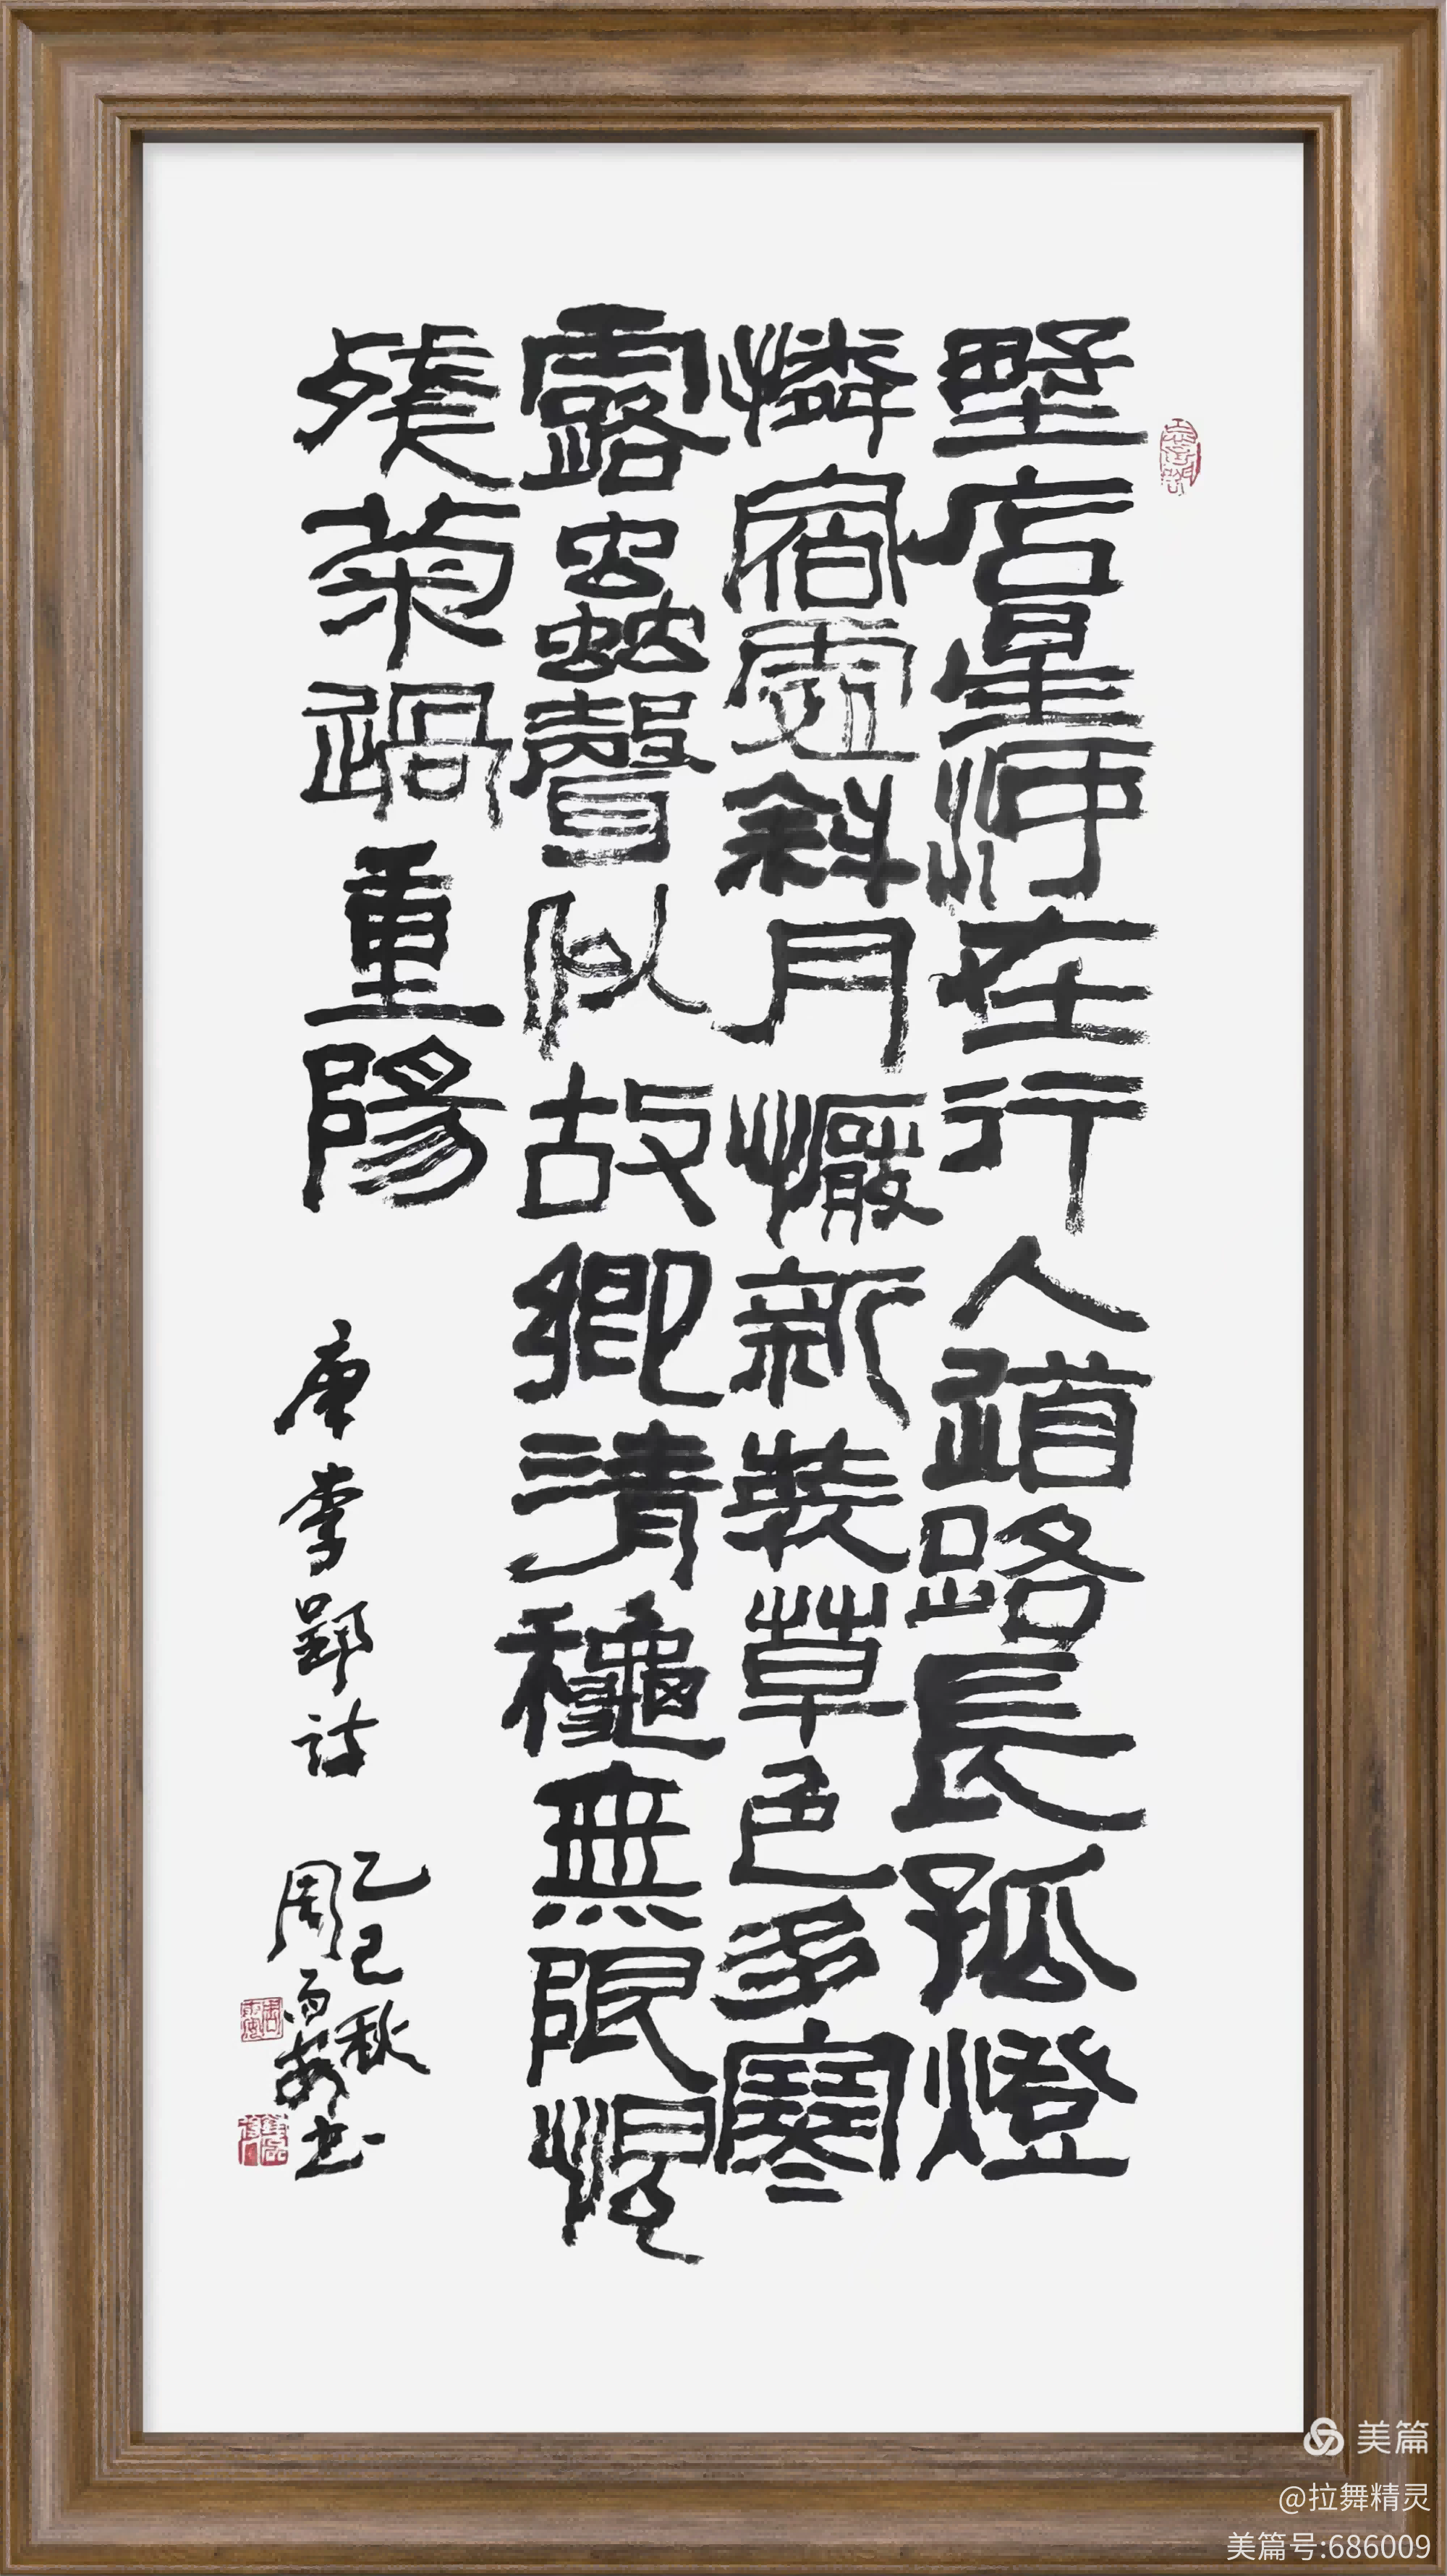 墅店星河在行人道路長孤燈
憐宿處斜月懨新裝草色多寒
露蟲聲似故鄉清龝無限恨
殘菊過重陽
唐李郢詩
乙巳秋
周雨书
美篇
@拉舞精灵
美篇号:686009